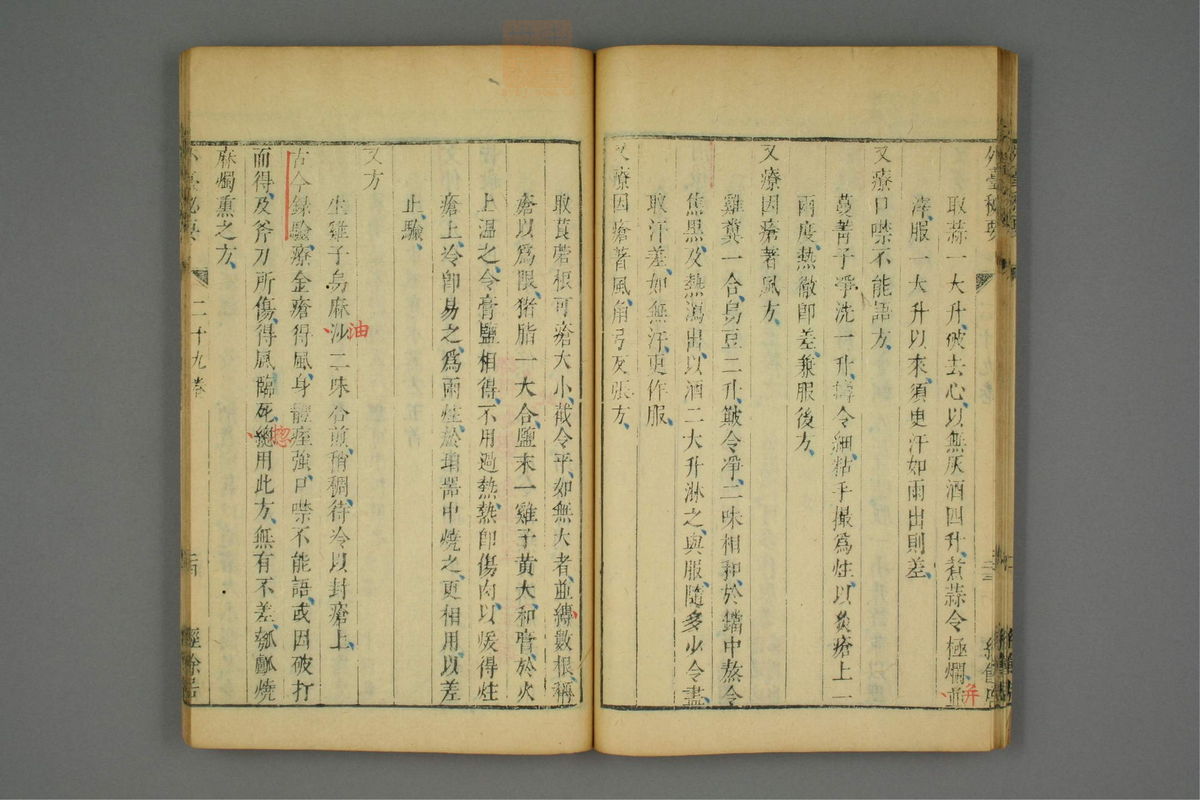 外臺秘要
取蒜一大升破去心以無灰酒四升煮蒜令極爛並
滓服一大升以來須臾汗如雨出則差
又療口噤不能語方
蔓菁子淨洗一升擣令細粘手撮爲炷以灸瘡上一
兩度熱徹即差兼服後方
又療因瘡著風方
雞糞一合烏豆二升簸令淨二味相和於鐺中熬令
焦黑及熱瀉出以酒二大升淋之與服隨多少令盡
取汗差如無汗更作服
又療因瘡著風角弓反張方
取莨蓎根可瘡大小截令平如無大者並縛數根稱
瘡以爲限猪脂一大合鹽末一雞子黃大和膏於火
上溫之令膏鹽相得不用過熱熱即傷肉以煖得炷
瘡上冷卽易之爲兩炷於坩器中燒之更相用以差
止驗
又方
生雞子烏麻沙二味合煎稍稠待冷以封瘡上
油
古今錄驗療金瘡得風身體痙強口噤不能語或因破打
而得及斧刀所傷得風臨死總用此方無有不差瓠瓤燒
惣
麻燭熏之方
二十九卷
經餘居
弁